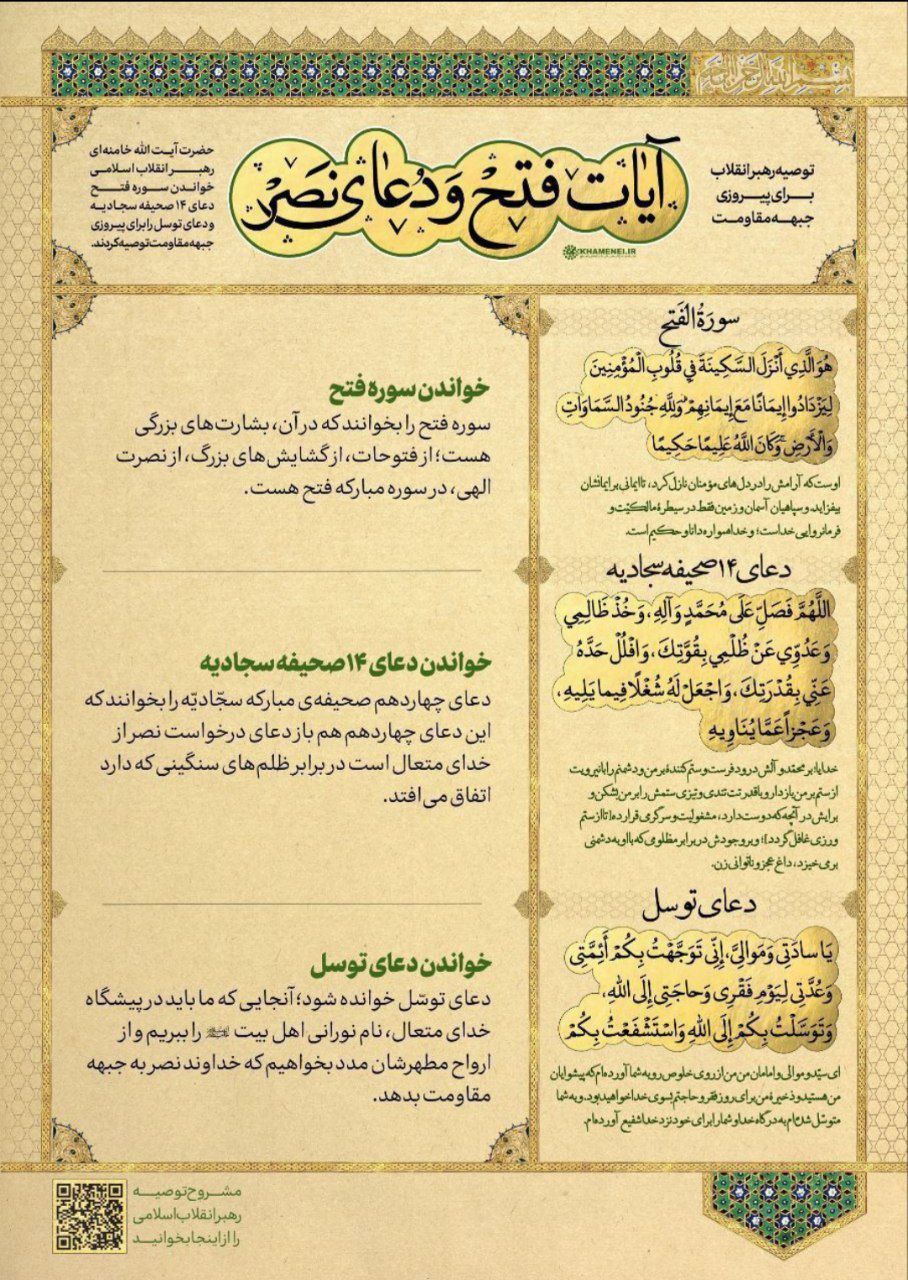 بسم الله الرحمن الرحیم
توصیه رهبر انقلاب
برای پیروزی
جبهه مقاومت
آیات فتح و دعای نصر
KHAMENEI.IR
حضرت آیت الله خامنه‌ای
رهبر انقلاب اسلامی
خواندن سوره فتح
دعای ۱۴ صحیفه سجادیه
و دعای توسل را برای پیروزی
جبهه مقاومت توصیه کردند.
سورَةُ الفَتح
هُوَ الَّذِي أَنْزَلَ السَّكِينَةَ فِي قُلُوبِ الْمُؤْمِنِينَ
لِيَزْدَادُوا إِيمَانًا مَعَ إِيمَانِهِمْ ۗ وَلِلَّهِ جُنُودُ السَّمَاوَاتِ
وَالْأَرْضِ ۚ وَكَانَ اللَّهُ عَلِيمًا حَكِيمًا
اوست که آرامش را در دل‌های مؤمنان نازل کرد، تا ایمانی بر ایمانشان
بیفزاید. و سپاهیان آسمان و زمین فقط در سیطرهٔ مالکیّت و
فرمانروایی خداست؛ و خدا همواره دانا و حکیم است.
دعای ۱۴ صحیفه سجادیه
اللَّهُمَّ فَصَلِّ عَلَى مُحَمَّدٍ وَآلِهِ، وَخُذْ ظَالِمِي
وَعَدُوِّي عَنْ ظُلْمِي بِقُوَّتِكَ، وَافْلُلْ حَدَّهُ
عَنِّي بِقُدْرَتِكَ، وَاجْعَلْ لَهُ شُغْلًا فِيما يَلِيهِ،
وَعَجْزاً عَمَّا يُنَاوِيهِ
خدایا؛ بر محمّد و آلش درود فرست و ستم کنندهٔ بر من و دشمنم را با نیرویت
از ستم بر من باز دار و با قدرتت تندی و تیزی ستمش را بر من بشکن و
برایش در آنچه که دوست دارد، مشغولیت و سرگرمی قرار ده [تا از ستم
ورزی غافل گردد]؛ و بر وجودش در برابر مظلومی که با او به دشمنی
برمی‌خیزد، داغ عجز و ناتوانی زن.
دعای توسل
يَا سادَتِي وَمَوالِيَّ، إِنِّي تَوَجَّهْتُ بِكُمْ أَئِمَّتِي
وَعُدَّتِي لِيَوْمِ فَقْرِي وَحاجَتِي إِلَى اللهِ،
وَتَوَسَّلْتُ بِكُمْ إِلَى اللهِ وَاسْتَشْفَعْتُ بِكُمْ
ای سیّد و موالی و امامان من من از روی خلوص رو به شما آورده‌ام که پیشوایان
من هستید و ذخیرهٔ من برای روز فقر و حاجتم بسوی خدا خواهید بود. و به شما
متوسّل شده‌ام به درگاه خدا و شما را برای خود نزد خدا شفیع آورده‌ام.
خواندن سوره فتح
سوره فتح را بخوانند که در آن، بشارت‌های بزرگی
هست؛ از فتوحات، از گشایش‌های بزرگ، از نصرت
الهی، در سوره مبارکه فتح هست.
خواندن دعای ۱۴ صحیفه سجادیه
دعای چهاردهم صحیفه‌ی مبارکه سجّادیّه را بخوانند که
این دعای چهاردهم هم باز دعای درخواست نصر از
خدای متعال است در برابر ظلم‌های سنگینی که دارد
اتفاق می‌افتد.
خواندن دعای توسل
دعای توسّل خوانده شود؛ آنجایی که ما باید در پیشگاه
خدای متعال، نام نورانی اهل بیت را ببریم و از
ارواح مطهرشان مدد بخواهیم که خداوند نصر به جبهه
مقاومت بدهد.
مشروح توصیه
رهبر انقلاب اسلامی
را از اینجا بخوانید